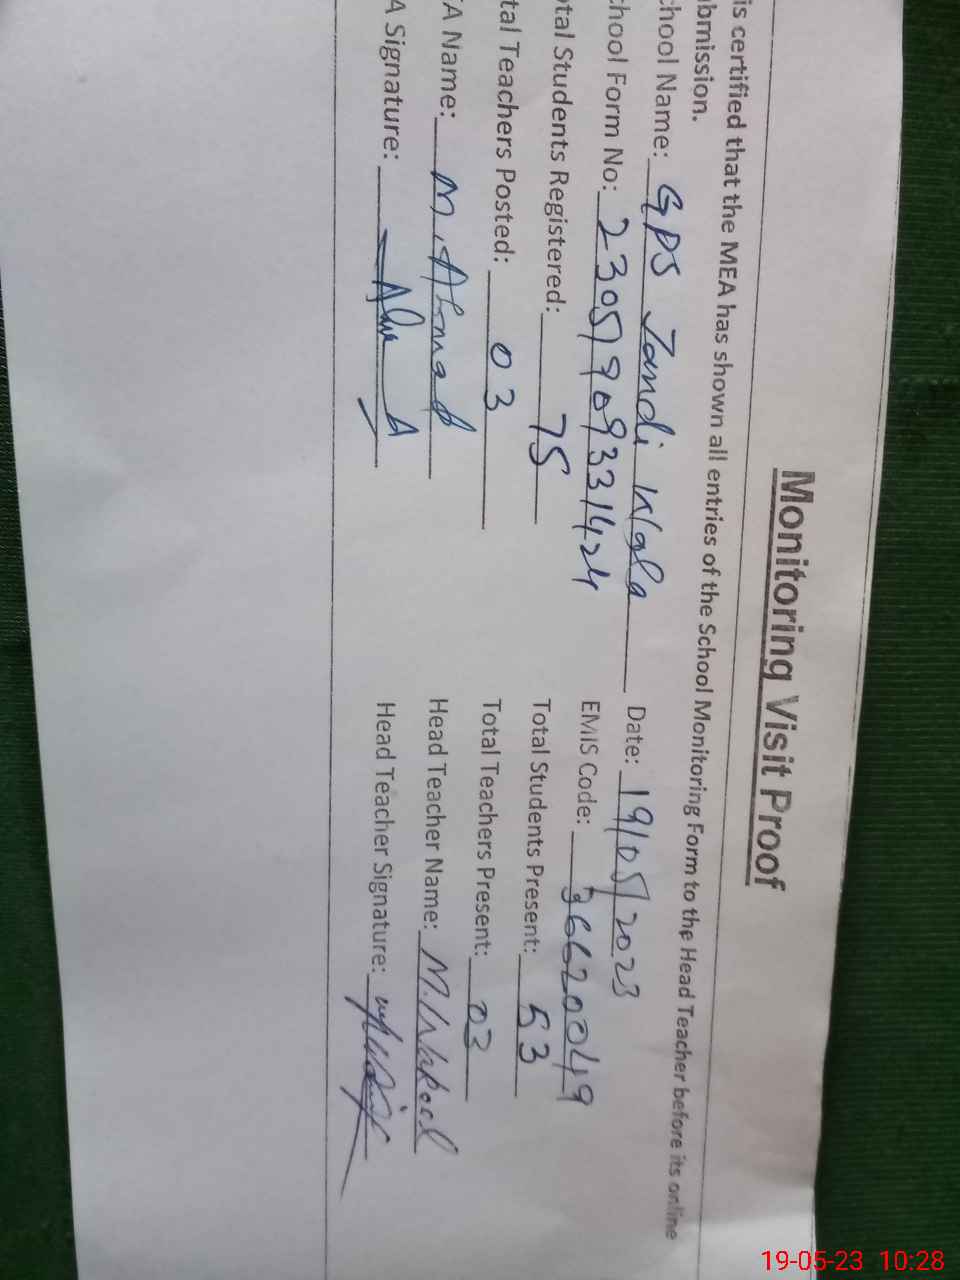 Monitoring Visit Proof
is certified that the MEA has shown all entries of the School Monitoring Form to the Head Teacher before its online
bmission.
chool Name: GPS Jandi Wala Date: 19/05/2023
chool Form No: 23051909331424 EMIS Code: 36620049
otal Students Registered: 75 Total Students Present: 53
tal Teachers Posted: 03 Total Teachers Present: 03
A Name: M. Ahmad Head Teacher Name: M. Wakeel
A Signature: Head Teacher Signature:
19-05-23 10:28